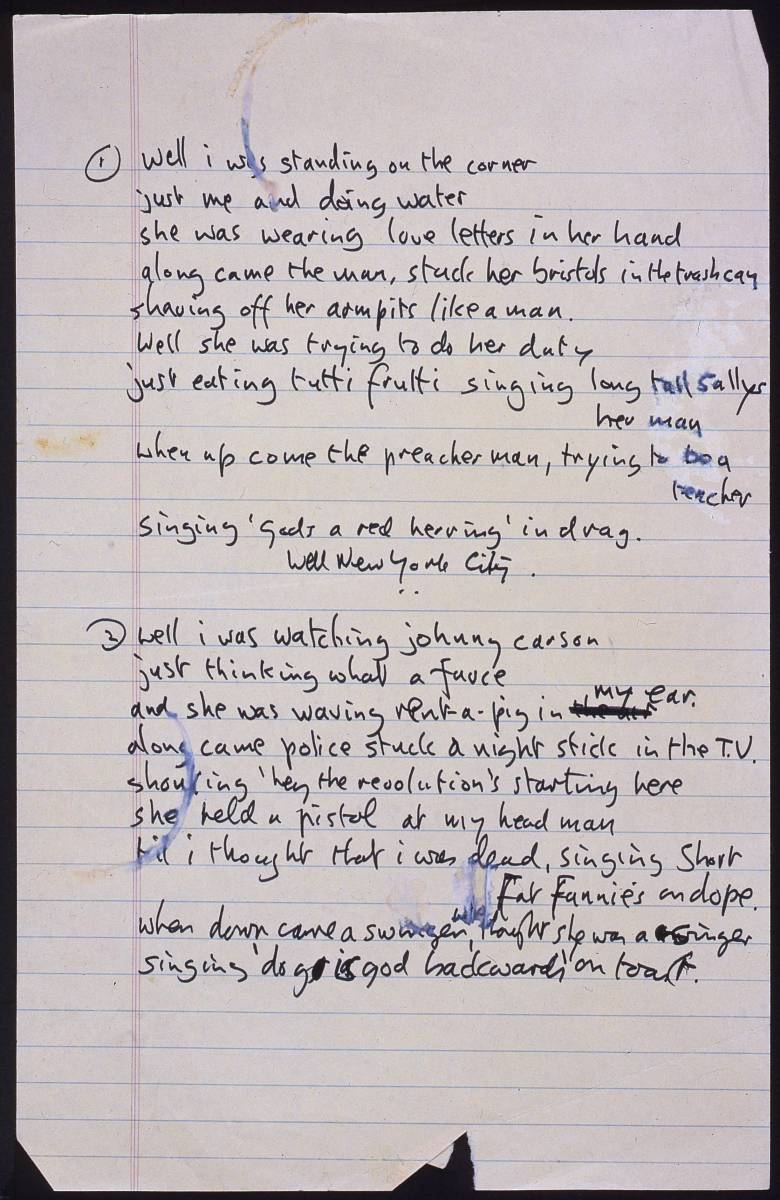 ① well i was standing on the corner
just me and doing water
she was wearing love letters in her hand
along came the man, stuck her bristols in the trashcan
shaving off her armpits like a man.
Well she was trying to do her duty
just eating tutti frutti singing long tall Sallys
her man
when up come the preacher man, trying to be a
teacher
singing 'Gods a red herring' in drag.
Well New York City.
② well i was watching johnny carson
just thinking what a farce
my ear.
and she was waving rent-a-pig in
along came police stuck a night stick in the T.V.
shouting 'hey the revolution's starting here
she held a pistol at my head man
til i thought that i was dead, singing Short
Fat Fannie's on dope.
when down came a swinger, thought she was a singer
singing 'dog is god backwards' on toast.